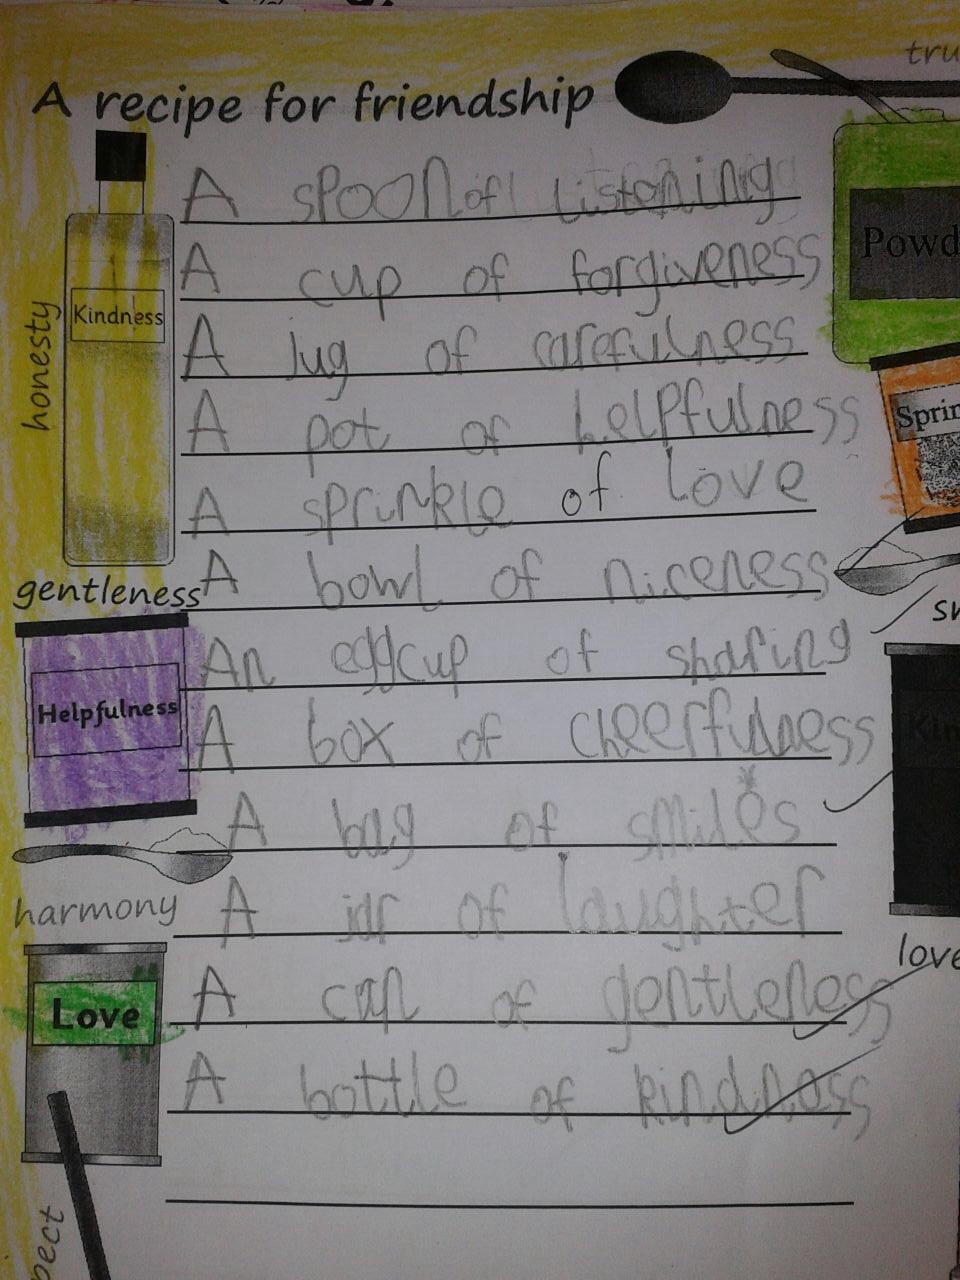 A recipe for friendship
A spoon of listening
A cup of forgiveness
A jug of carefulness
A pot of helpfulness
A sprinkle of love
A bowl of niceness
An eggcup of sharing
A box of cheerfulness
A bag of smiles
A jar of laughter
A can of gentleness
A bottle of kindness
honesty
Kindness
gentleness
Helpfulness
harmony
Love
pect
tru
Powd
Sprin
sh
Kin
love